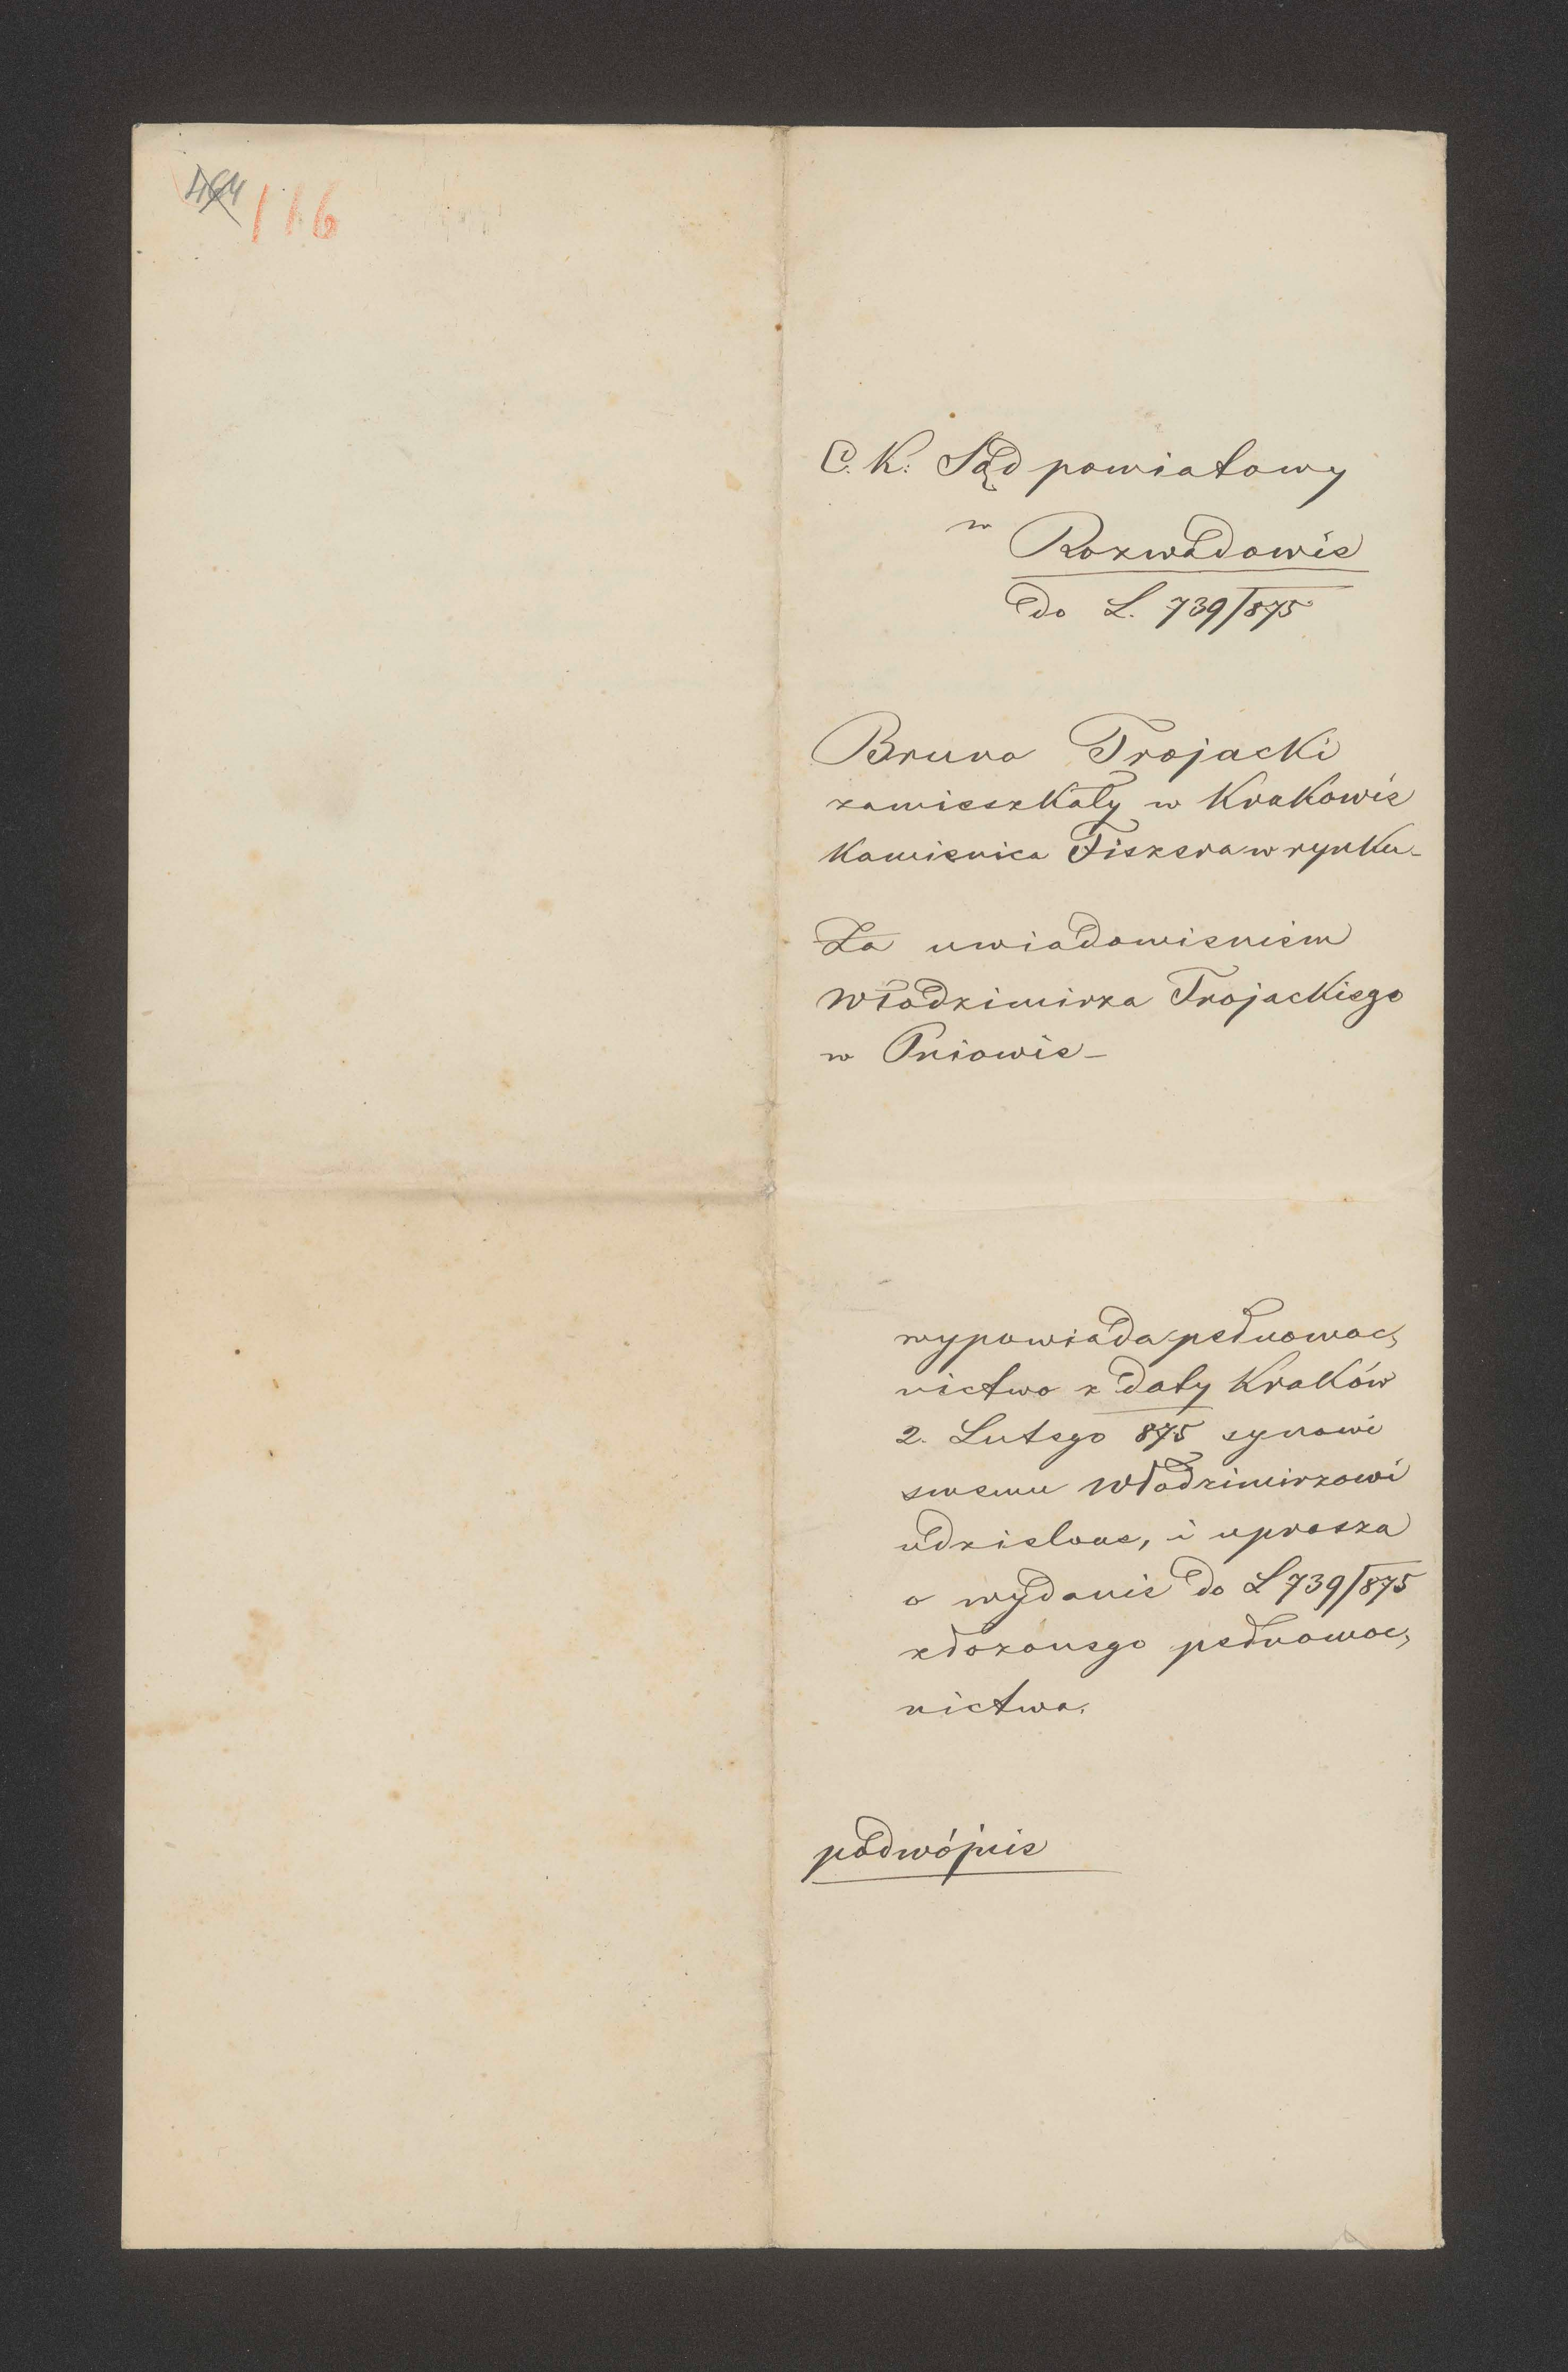 464 116
C. K: Sąd powiatowy
w Rozwadowie
do L. 739/875
Bruno Trojacki
zamieszkały w Krakowie
Kamienica Fiszera w rynku-
Za uwiadomieniem
Włodzimirza Trojackiego
w Pniowie-
wypowiada pełnomoc,
nictwo z daty Kraków
2. Lutego 875 synowi
swemu Włodzimirzowi
udzielone, i uprasza
o wydanie do L 739/875
złożonego pełnomoc,
nictwa.
podwójnie